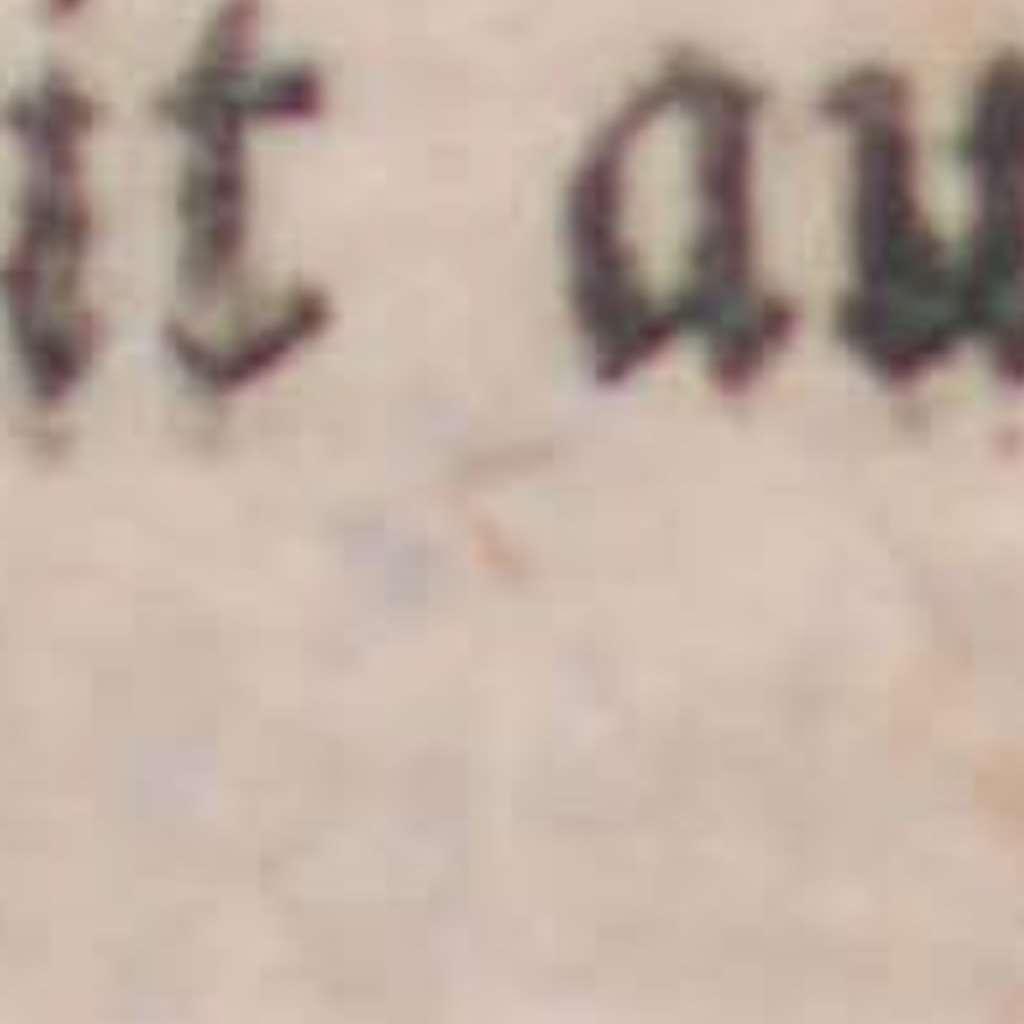 it au